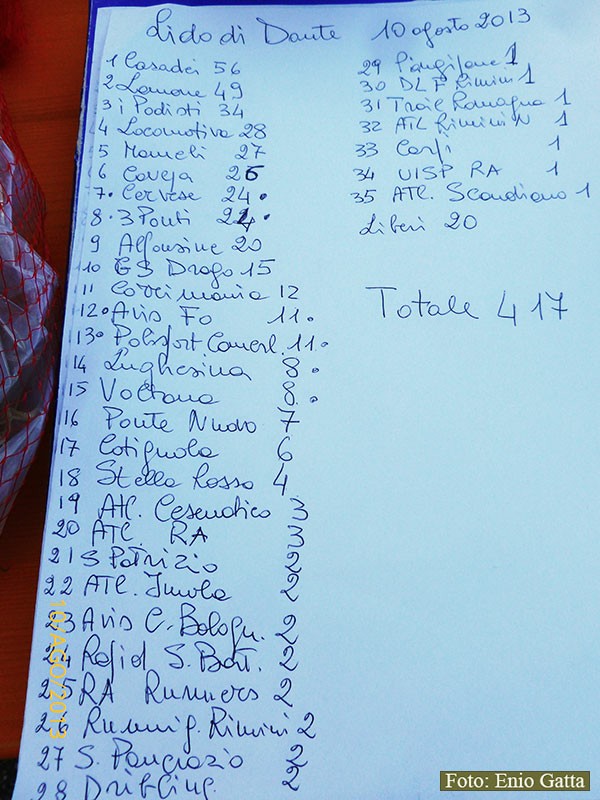 Lido di Dante 10 agosto 2013
1 Casadei 56
2 Lamone 49
3 i Podisti 34
4 Locomotiva 28
5 Mameli 27
6 Caveja 26
7. Cervese 24.
8. 3 Ponti 24.
9 Alfonsine 20
10 GS Drago 15
11 Corrimania 12
12. Avis Fo 11.
13. Polisport Comerl. 11.
14 Lughesina 8.
15 Voltana 8.
16 Ponte Nuovo 7
17 Cotignola 6
18 Stella Rossa 4
19 Atl. Cesenatico 3
20 ATL. RA 3
21 S Patrizio 2
22 ATL. Imola 2
23 Avis C. Bologn. 2
24 S. Bart. 2
25 RA Runners 2
26 Runnig. Rimini 2
27 S. Pancrazio 2
28 Dribling. 2
29 1
30 DLF Rimini 1
31 Trail Romagna 1
32 ATL Rimini N 1
33 Carpi 1
34 UISP RA 1
35 ATL. Scandiano 1
Liberi 20
Totale 417
10/AGO/2013
Foto: Enio Gatta